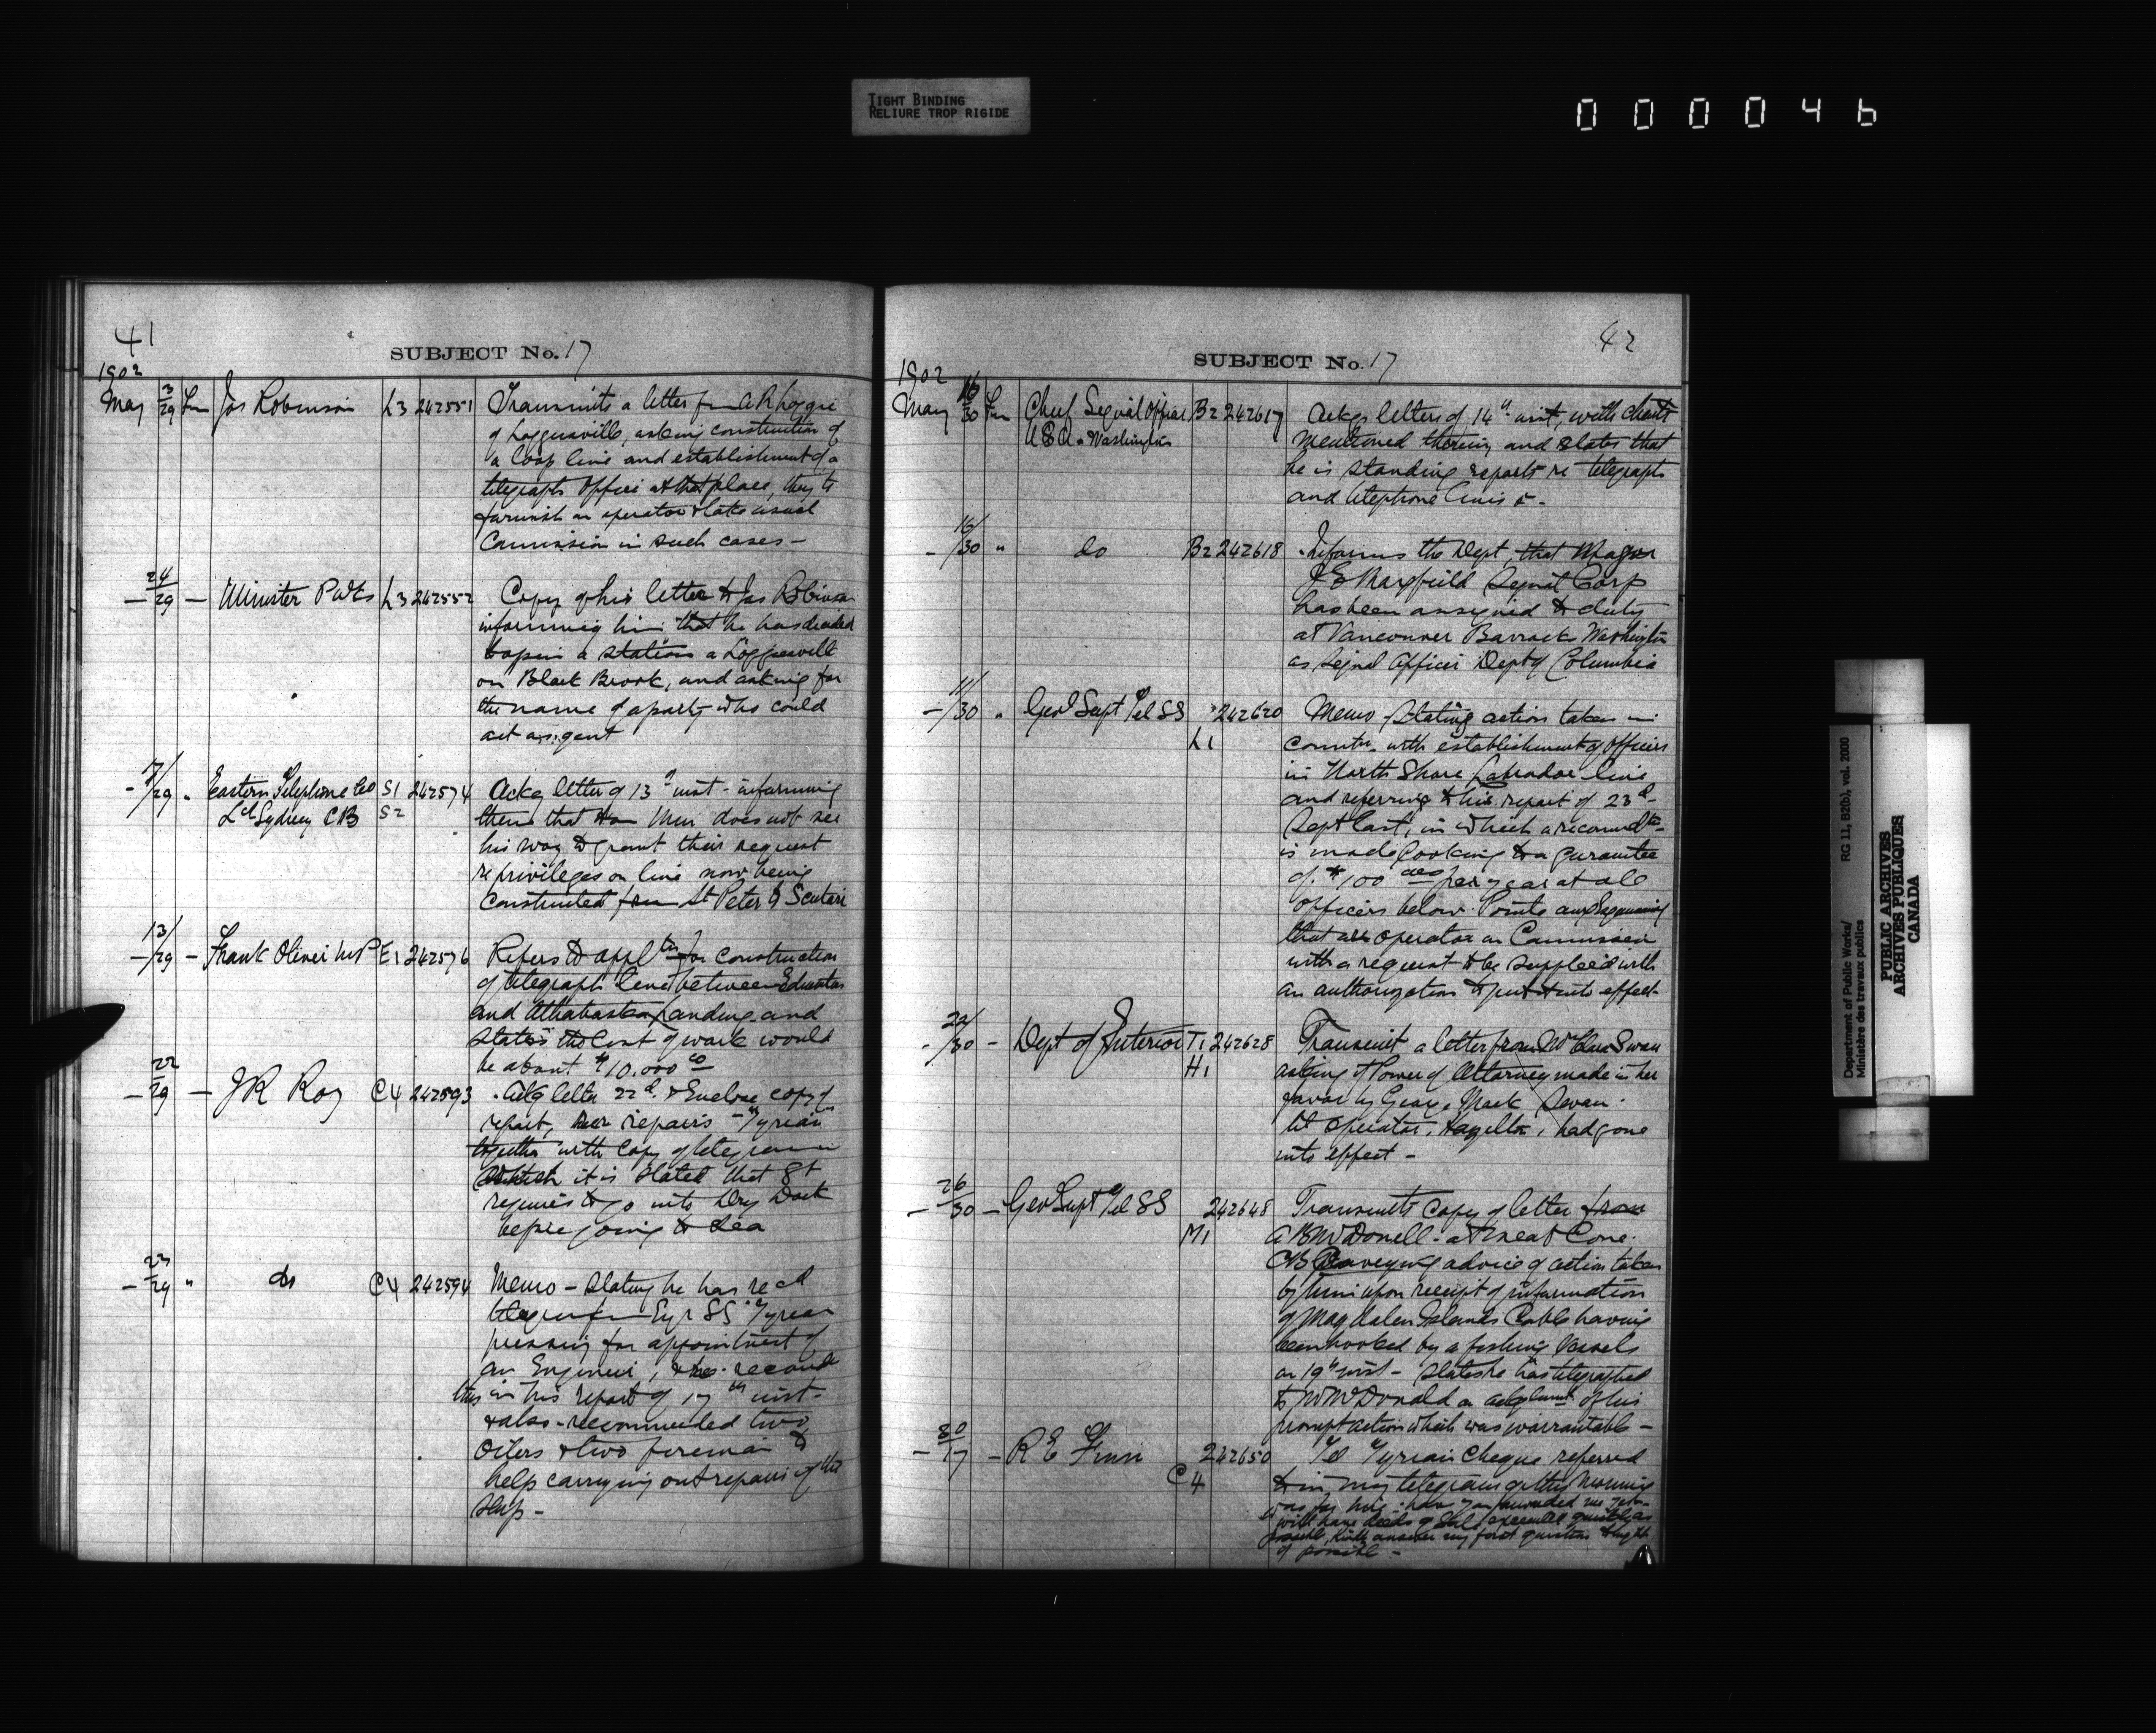 TIGHT BINDING
RELIURE TROP RIGIDE
000046
41
SUBJECT No. 17
1902
May 3/29 Fm Jos Robinson L3 242551 Transmits a letter fm A R Loggie
of Loggieville, asking construction of
a loop line and establishment of a
telegraph office at that place, they to
furnish an operator & take usual
Commission in such cases -
- 24/29 - Minister P Wks L3 242552 Copy of his letter to Jas Robinson
informing him that he has decided
to open a station a Loggieville
on Black Brook, and asking for
the name of a party who could
act as agent
- 17/29 " Eastern Telephone Co S1 242574 Ackg letter of 13th inst - informing
Ltd Sydney CB S2 them that Hon Min does not see
his way to grant their request
re privileges on line now being
constructed from St Peter to Scatari
- 13/29 - Frank Oliver MP E1 242576 Refers to appltn for construction
of telegraph line between Edmonton
and Athabaska Landing and
states the cost of work would
be about $10.000 00
- 22/29 - J R Roy C4 242593 Ackg letter 22d & Enclose copy of
report, repairs - "Tyrian"
together with copy of telegram
which it is stated that St
requires to go into Dry Dock
before going to Sea
- 27/29 " do C4 242594 Memo - stating he has recd
telegram fm SS Tyrian
pressing for appointment of
an Engineer,
this in his report of 17th inst -
& also - recommended two
Oilers & two firemen to
help carrying out repairs of the
Ship -
42
SUBJECT No. 17
1902
May 16/30 Fm Chief Signal Officer B2 242617 Ackg letter of 14th inst, with charts
U S A - Washington mentioned therein, and states that
he is standing reports re telegraph
and telephone lines &-
- 16/30 " do B2 242618 Informs the Dept, that Major
J E Maxfield Signal Corp
has been assigned to duty
at Vancouver Barracks Washington
as Signal Officer Dept of Columbia
- 11/30 " Genl Supt Tel SS 242620 Memo - stating action taken in
L1 with establishment of offices
in North Shore Labrador line
and referring to his report of 23d
Sept last, in which a recomdtn
is made looking to a guarantee
of $100 per year at all
offices below Pointe aux Esquimaux
that are operator on Commission
with a request to be supplied with
an authorization to put it into effect -
- 22/30 - Dept of Interior T1 242628 Transmit a letter from Swan
H1 asking if Power of Attorney made in her
favor by Geo. Mark Swan
tel operator, Hazelton, had gone
into effect -
- 26/30 - Genl Supt Tel SS 242648 Transmits copy of letter from
M1 A B McDonell - at Meat Cove
CB Conveying advice of action taken
by him upon receipt of information
of Magdalen Islands Cable having
been hooked by a fishing vessels
on 19th inst - States he has telegraphed
to Mr McDonald on of his
prompt action which was warrantable -
- 30/17 - R E Finn 242650 Tel Tyrian Cheque referred
C4 to in my telegram of this morning
was for hire - have you forwarded me
will have deeds of executed quickly as
possible, Kindly answer my first question tonight
if possible -
Department of Public Works/
Ministère des travaux publics
RG 11, B2(b), vol. 2000
PUBLIC ARCHIVES
ARCHIVES PUBLIQUES
CANADA